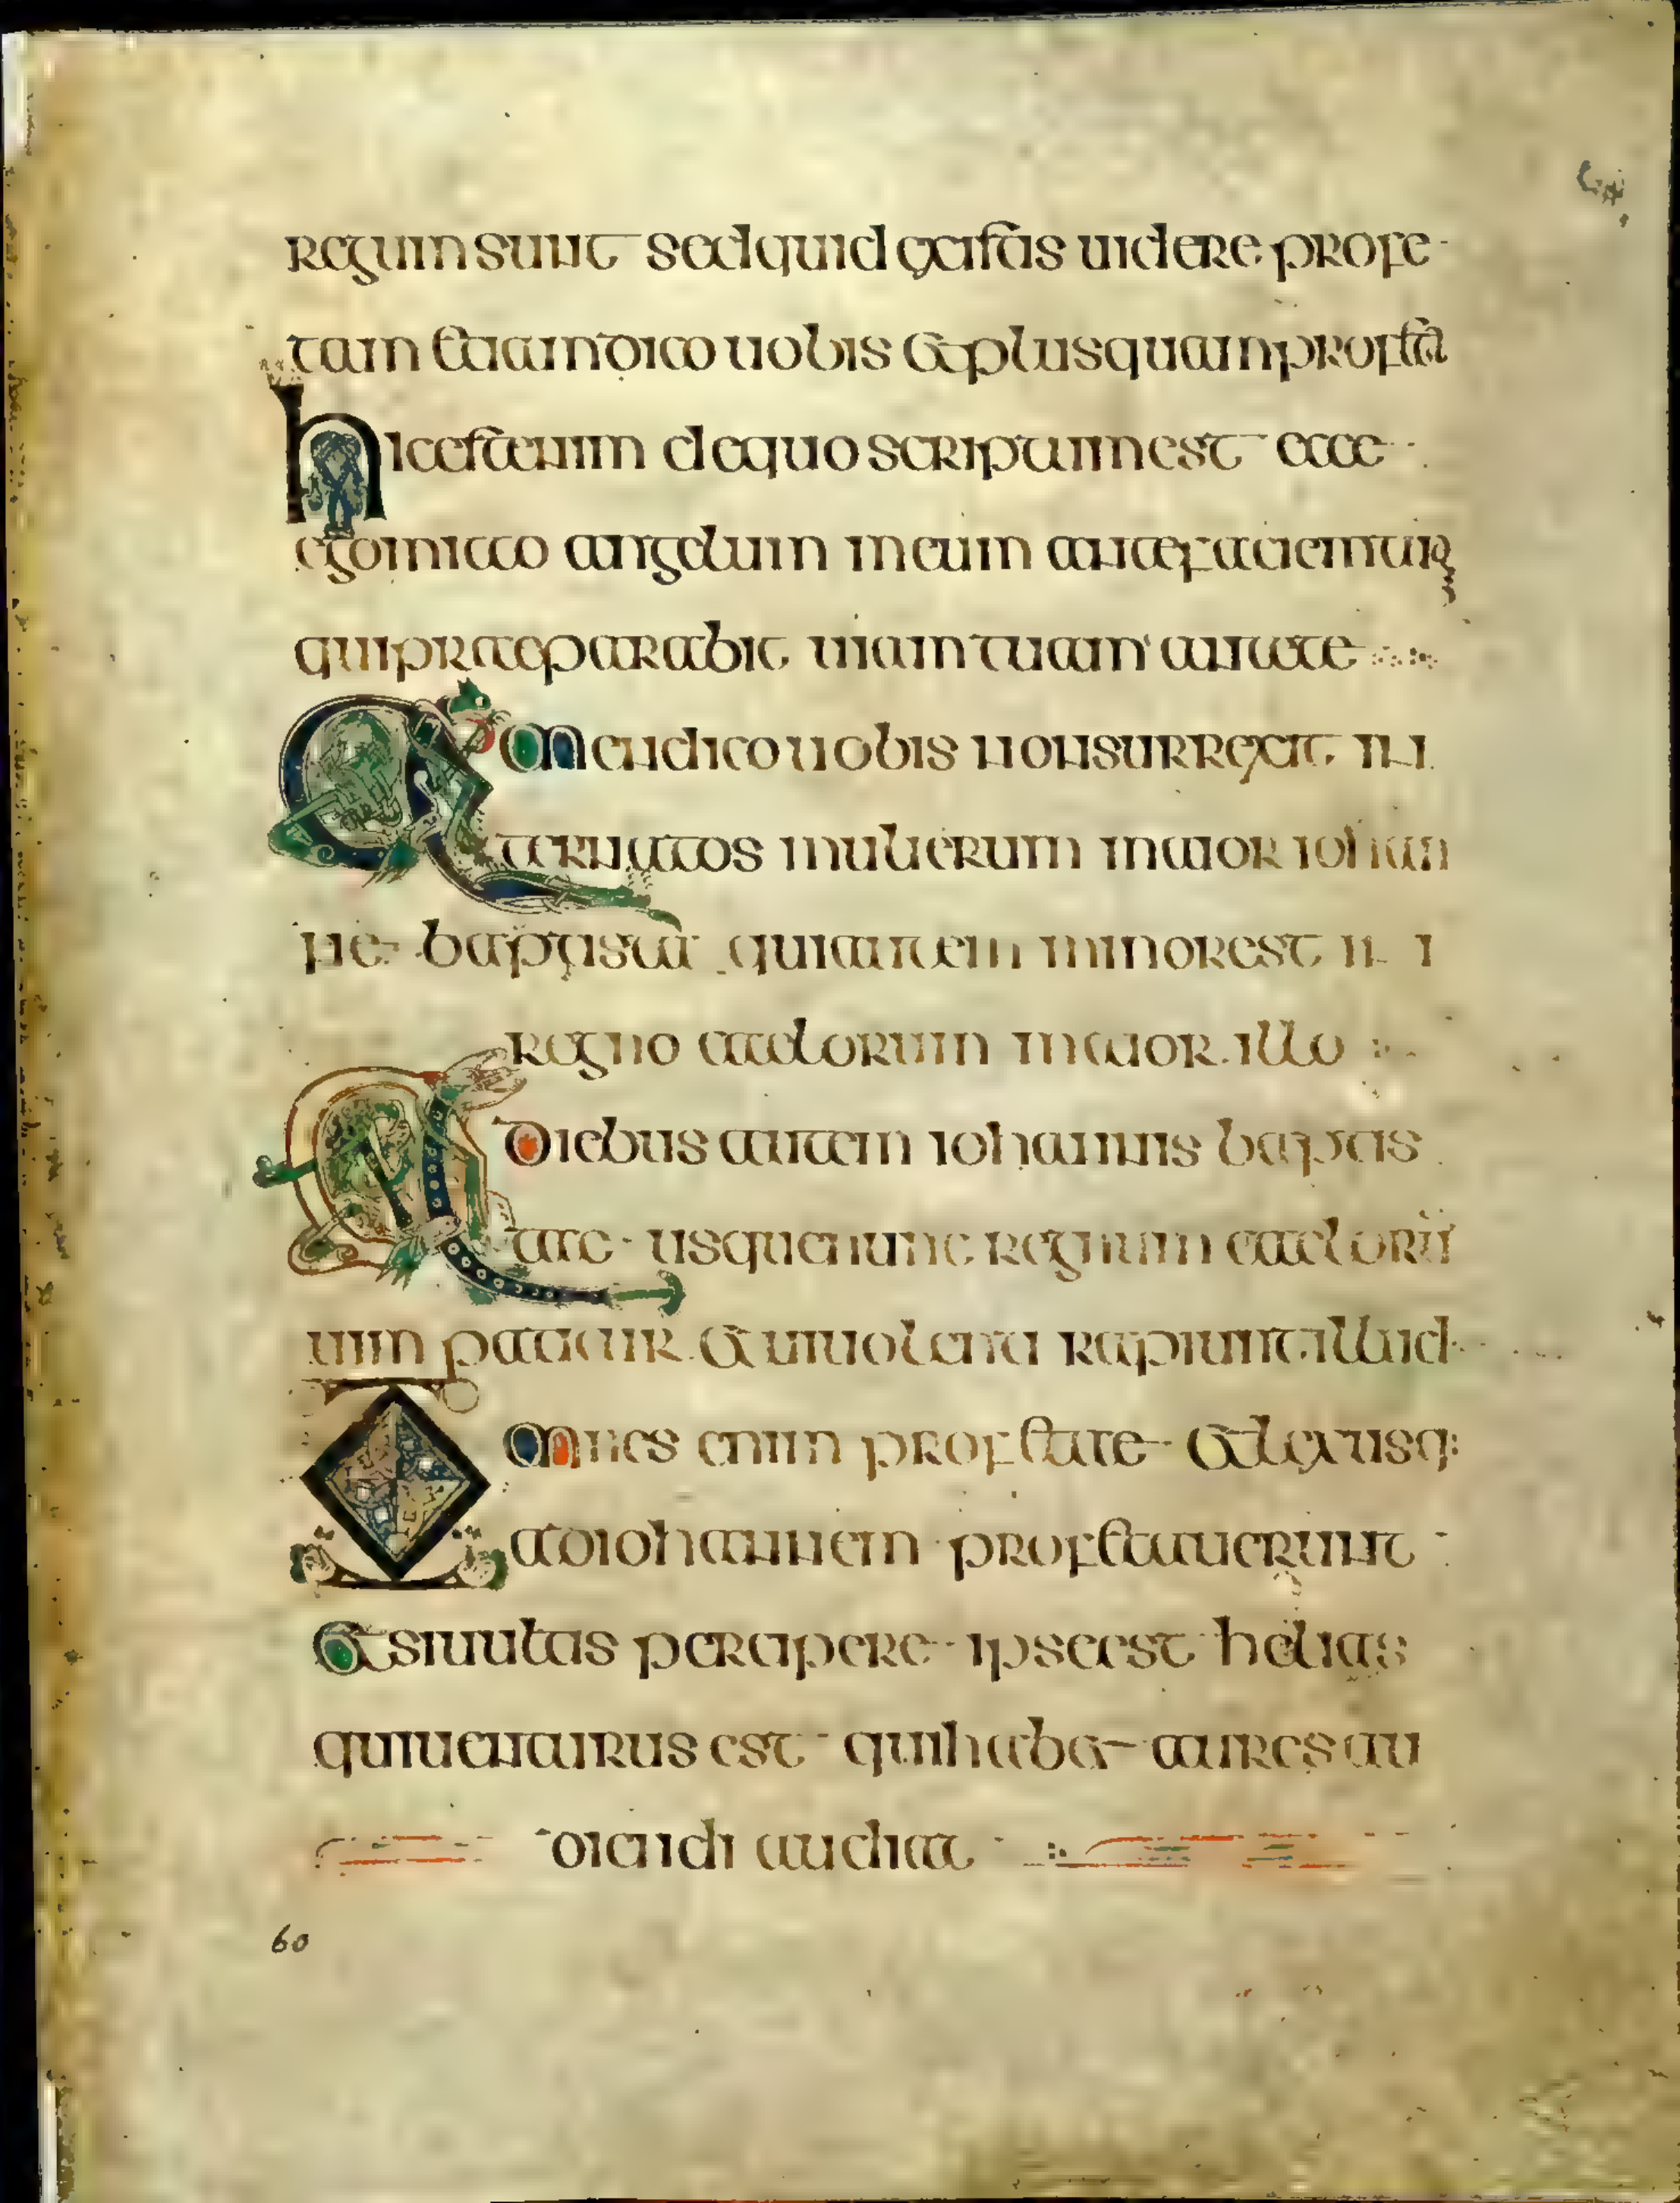 regum sunt sed quid existis uidere profe
tam etiam dico uobis et plus quam profeta
hic est enim de quo scriptum est ecce
ego mitto angelum meum ante faciem tuam
qui praeparabit uiam tuam ante te
Amen dico uobis non surrexit in
ter natos mulierum maior iohan
ne baptista qui autem minor est in
regno caelorum maior illo
A diebus autem iohannis baptis
tae usque nunc regnum caelorum
uim patitur et uiuolenti rapiunt illud
Omnes enim profetae et lex usq:
ad iohannem profetauerunt
Et si uultis percipere ipse est helias
qui uenturus est qui habet aures au
diendi audiat
60